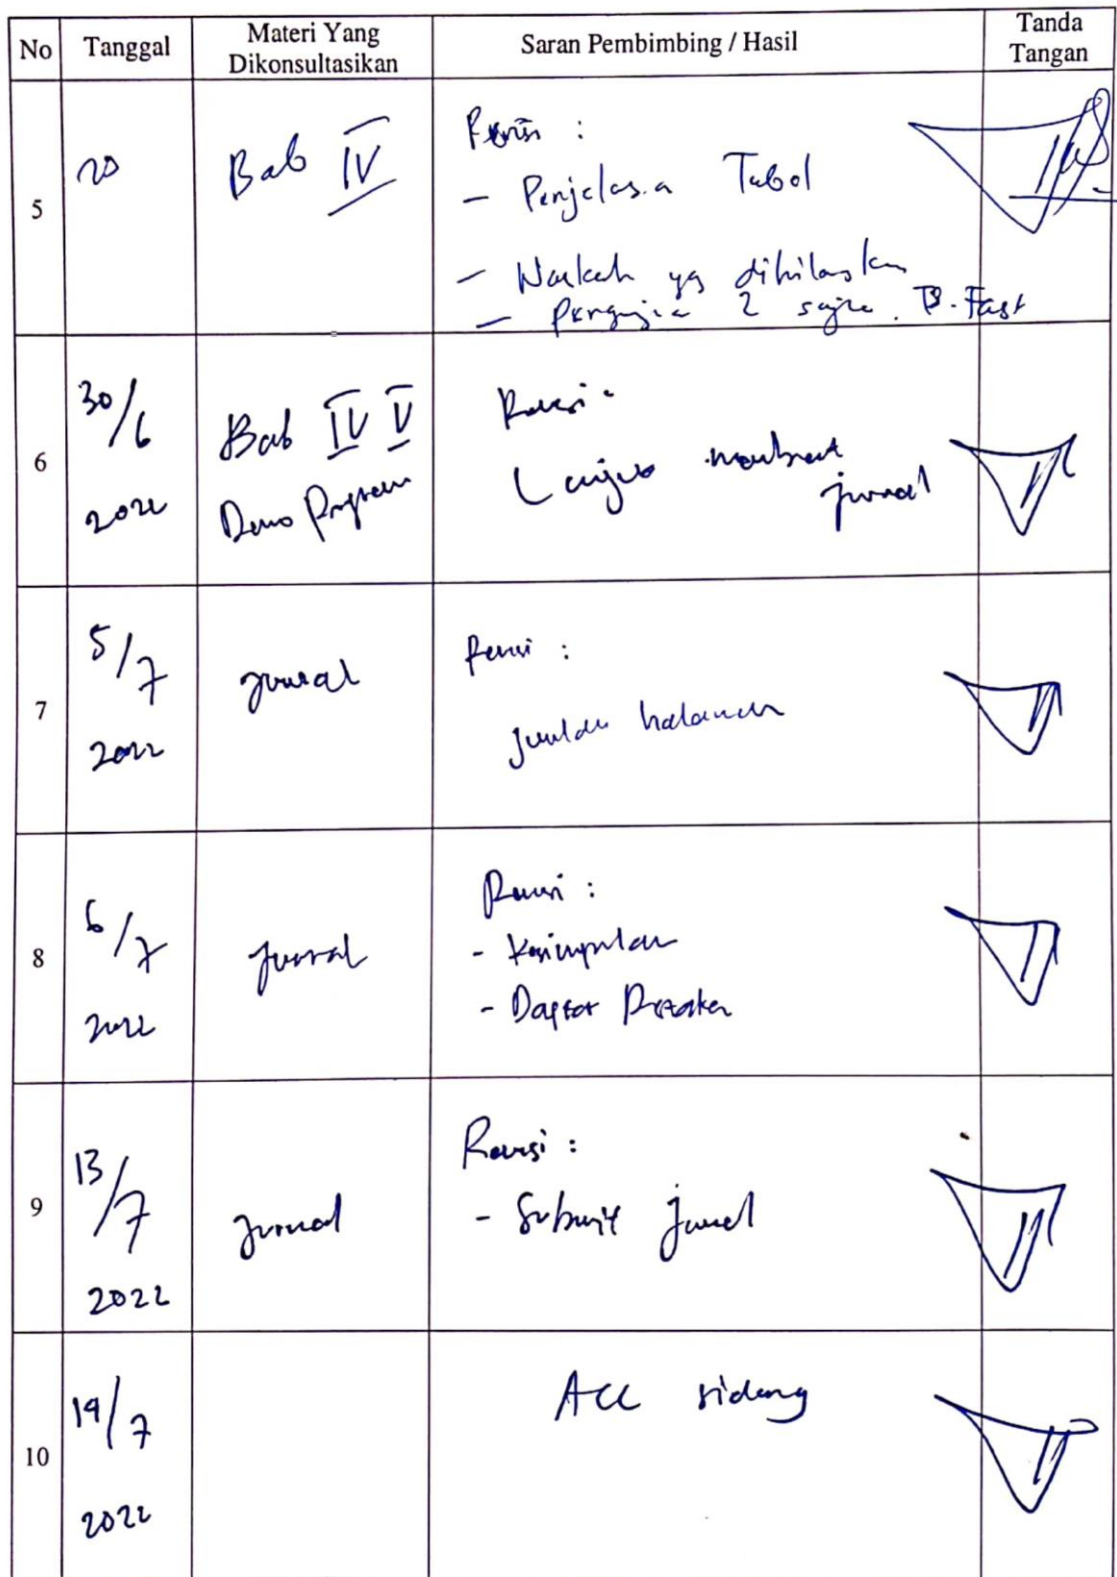 No Tanggal Materi Yang Dikonsultasikan Saran Pembimbing / Hasil Tanda Tangan
5 20 Bab IV Revisi :
- Penjelasa Tabel
- yg dihilangkan
- Pengujia 2 saja.
6 30/6 2022 Bab IV V Revisi :
Demo Program Lanjut membuat jurnal
7 5/7 2022 jurnal Revisi :
jumlah halaman
8 6/7 2022 jurnal Revisi :
- Kesimpulan
- Daftar Pustaka
9 13/7 2022 jurnal Revisi :
- Submit jurnal
10 19/7 2022 ACC sidang